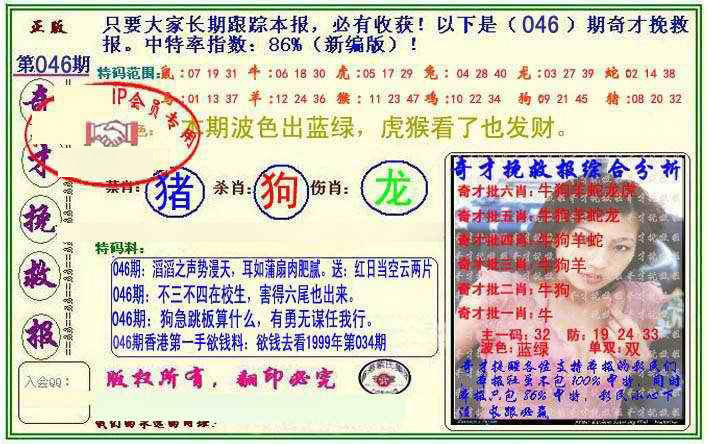 正版
只要大家长期跟踪本报，必有收获！以下是（046）期奇才挽救
报。中特率指数：86%（新编版）！
第046期
特码范围:
鼠:07 19 31 牛:06 18 30 虎:05 17 29 兔:04 28 40 龙:03 27 39 蛇:02 14 38
:01 13 37 羊:12 24 36 猴:11 23 47 鸡:10 22 34 狗:09 21 45 猪:08 20 32
IP会员专用
色: 本期波色出蓝绿，虎猴看了也发财。
奇才挽救报
禁肖:猪 杀肖:狗 伤肖:龙
特码料:
046期：滔滔之声势漫天，耳如蒲扇肉肥腻。送：红日当空云两片
046期：不三不四在校生，害得六尾也出来。
046期：狗急跳板算什么，有勇无谋任我行。
046期香港第一手欲钱料：欲钱去看1999年第034期
入会QQ:
版权所有，翻印必究
奇才挽救报综合分析
奇才批六肖:牛狗羊蛇龙虎
奇才批五肖:牛狗羊蛇龙
奇才批四肖:牛狗羊蛇
奇才批三肖:牛狗羊
奇才批二肖:牛狗
奇才批一肖:牛
主一码:32 防:19 24 33
波色:蓝绿 单双:双
奇才提醒各位支持本报的彩民们
本报社虽不包100%中特，但时
本报只包86%中特，彩民小心下
注，长跟必赢